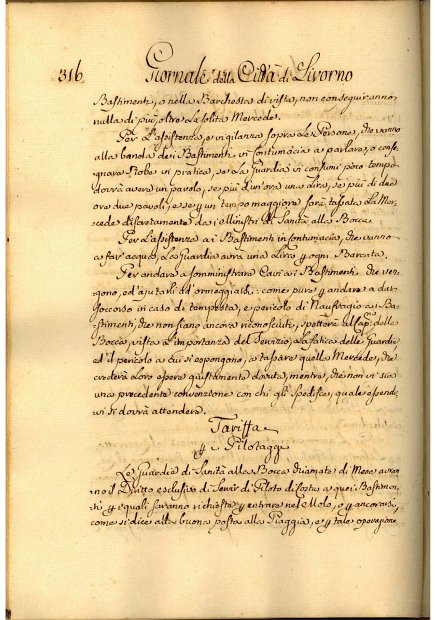 316 Giornale della Città di Livorno
Bastimenti, o nella Barchetta di vista, non conseguiranno
nulla di più, oltre la solita Mercede.
Per l'assistenza, e vigilanza sopra le Persone, che vanno
alla banda dei Bastimenti in contumacia a parlare, o conse-
gnare Robe in pratica, se la Guardia vi consumi poco tempo
dovrà avere un pavolo, se più d'un'ora una Lira, se più di due
ore due pavoli, e se un tempo maggiore sarà tassata la Mer-
cede discretamente dai Ministri di Sanità alla Bocca
Per l'assistenza ai Bastimenti in Contumacia, che vanno
a far acqua, la Guardia avrà una Lira ogni Barcata.
Per andare a somministrare Cavi ai Bastimenti che ven-
gono, ed ajutarli ad ormeggiarsi: come pure andare a dar
soccorso in caso di tempesta, e pericolo di Naufragio ai Ba-
stimenti, che non siano ancora riconosciuti, spetterà al Cap: della
Bocca, vista l'importanza del Servizio, la fatica delle Guardie
ed il pericolo a cui si espongono, a tassare quella Mercede, che
crederà loro essere giustamente dovuta, mentre, che non vi sia
una precedente convenzione con chi gli spedisce, quale essendo-
vi si dovrà attendere.
Tariffa
Pilotaggi
Le Guardie di Sanità alla Bocca chiamate di Mese avran-
no il Diritto esclusivo di servir di Piloto di Costa a quei Bastimen-
ti i quali saranno richieste entrare nel Molo, o ancorarsi,
come si dice alla buona posta alla Piaggia, e tale operazione